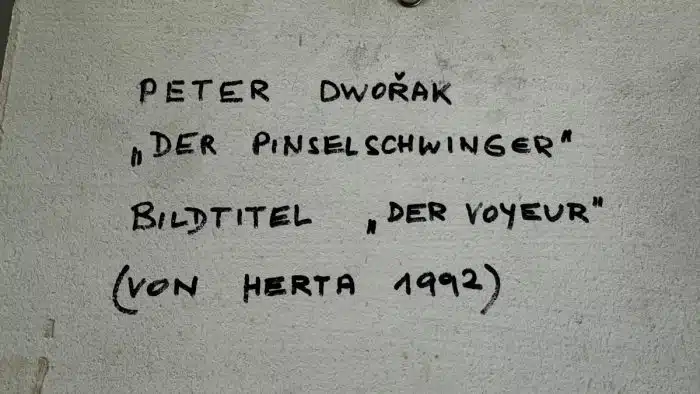 PETER DWOŘAK
„DER PINSELSCHWINGER"
BILDTITEL „DER VOYEUR"
(VON HERTA 1992)